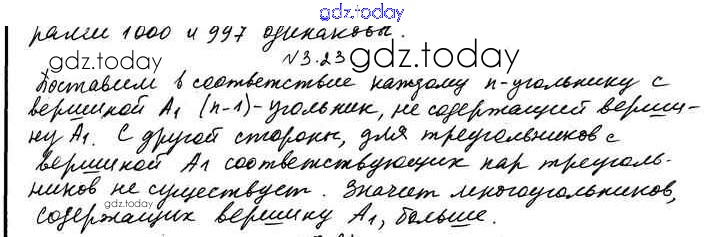 gdz.today
ралли 1000 и 997 одинаковы.
gdz.today
N3.23 gdz.today
Поставим в соответствие каждому n-угольнику с
вершиной A1 (n-1)-угольник, не содержащий верши-
ну A1. С другой стороны, для треугольников с
вершиной A1 соответствующих пар треуголь-
ников не существует. Значит многоугольников,
gdz.today
содержащих вершину A1, больше.